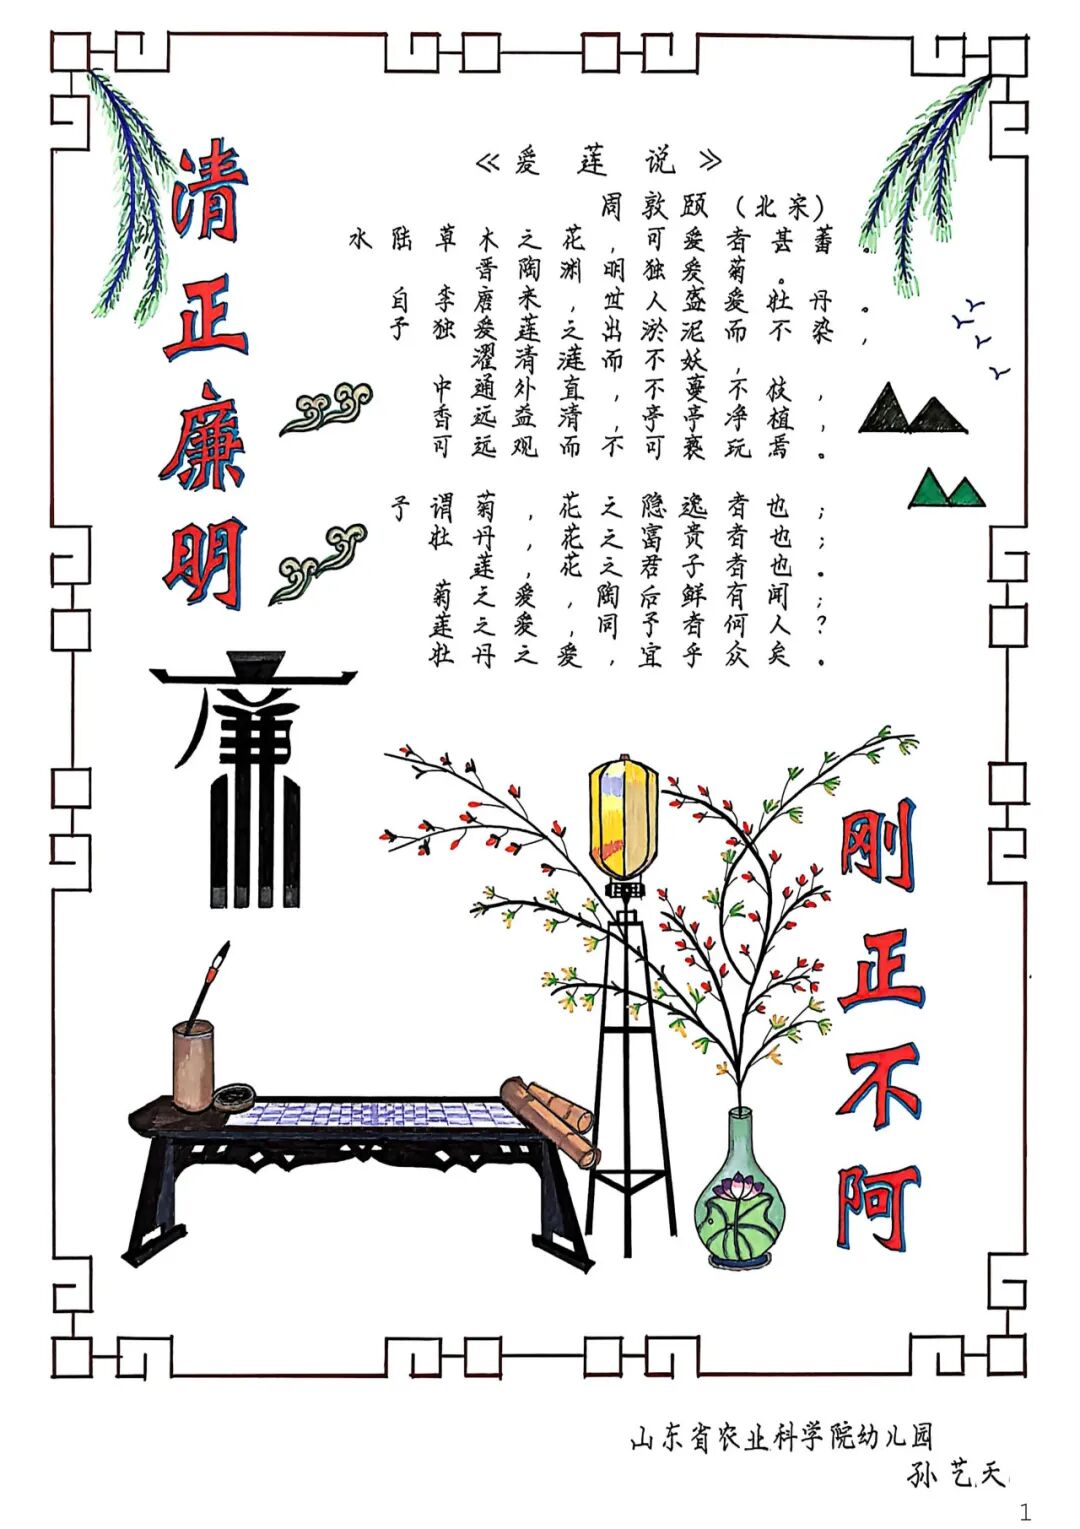 清正廉明
《爱莲说》
周敦颐（北宋）
水陆草木之花，可爱者甚蕃。
晋陶渊明独爱菊。
自李唐来，世人盛爱牡丹。
予独爱莲之出淤泥而不染，
濯清涟而不妖，
中通外直，不蔓不枝，
香远益清，亭亭净植，
可远观而不可亵玩焉。
予谓菊，花之隐逸者也；
牡丹，花之富贵者也；
莲，花之君子者也。
菊之爱，陶后鲜有闻；
莲之爱，同予者何人？
牡丹之爱，宜乎众矣。
廉
刚正不阿
山东省农业科学院幼儿园
孙艺天
1